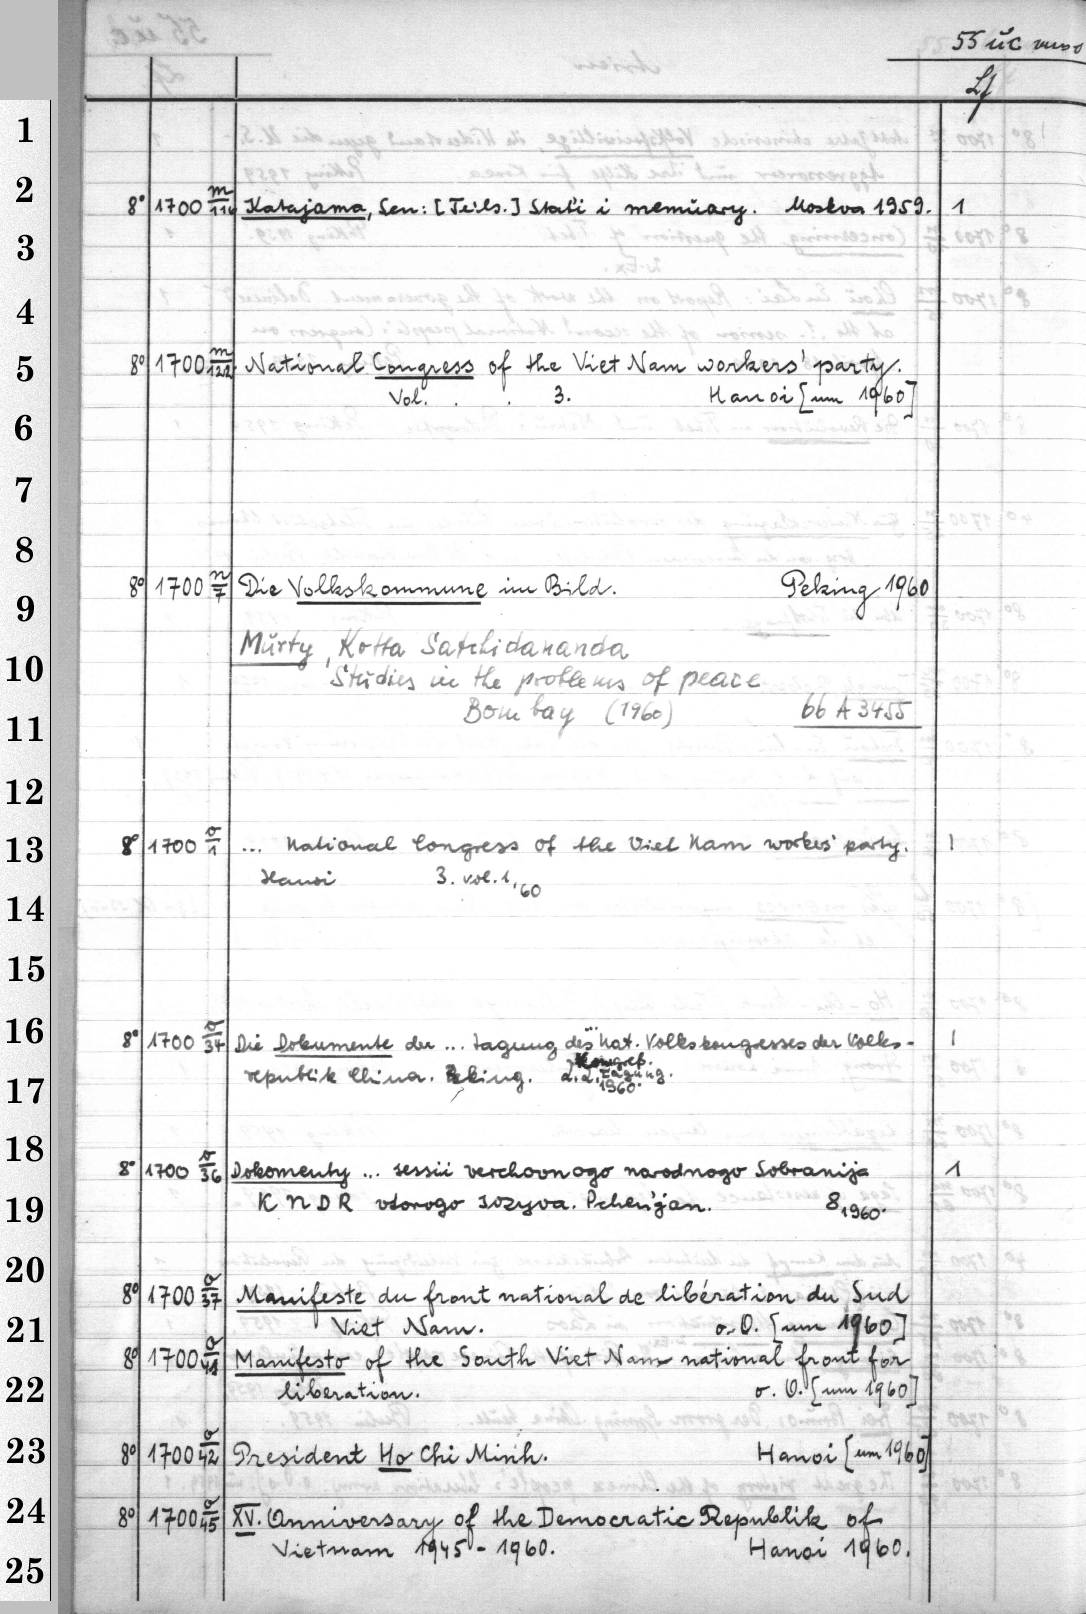 55 üc
Lf
1
2
8° 1700 m/116 Katajama, Sen: [Teils.] Stat'i i memuary. Moskva 1959. 1
3
4
5
8° 1700 m/122 National Congress of the Viet Nam workers' party.
Vol. . . 3. Hanoi [um 1960]
6
7
8
8° 1700 n/7 Die Volkskommune im Bild. Peking 1960
9
Murty, Kotta Satchidananda
10
Studies in the problems of peace
Bombay (1960) 66 A 3455
11
12
13
8° 1700 o/1 ... National Congress of the Viet Nam workes' party. 1
Hanoi 3. vol. 1, 60
14
15
16
8° 1700 o/34 Die Dokumente der ... tagung des ... Nat. Volkskongresses der Volks- 1
republik China. Peking. 2. Kongreß. 2. Tagung. 1960.
17
18
8° 1700 o/36 Dokomenty ... sessii verchovnogo narodnogo Sobranija 1
19
KNDR vtorogo sozyva. Pchen'jan. 8, 1960.
20
8° 1700 o/37 Manifeste du front national de libération du Sud
21
Viet Nam. o. O. [um 1960]
8° 1700 o/41 Manifesto of the South Viet Nam national front for
22
liberation. o. O. [um 1960]
23
8° 1700 o/42 President Ho Chi Minh. Hanoi [um 1960]
24
8° 1700 o/45 XV. Anniversary of the Democratic Republik of
Vietnam 1945-1960. Hanoi 1960.
25